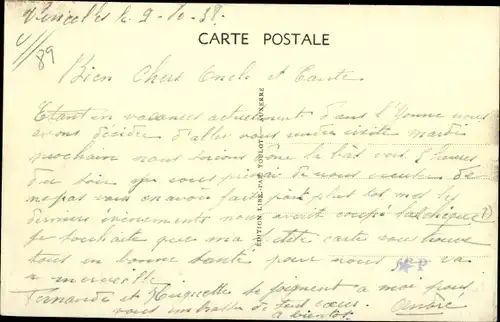 Vincelles le 2-10-38
V/89
CARTE POSTALE
Bien Chers Oncle et Tante
Etant en vacances actuellement dans l'Yonne nous
avons décider d'aller vous rendre visite mardi
prochain nous serions donc la bàs vers 5 heures
du soir je vous prierai de nous excuser de
ne pas vous en avoir fait part plus tôt mes les
derniers évènements nous avait coupé
je souhaite que ma petite carte vous trouve
tous en bonne santé pour nous sa va
a merveille.
Fernande et Huguette se joignent a moi pour
vous embrasser de tout cœur.
a bientôt
André
EDITION LIBR.-PAP. TOULOT - AUXERRE